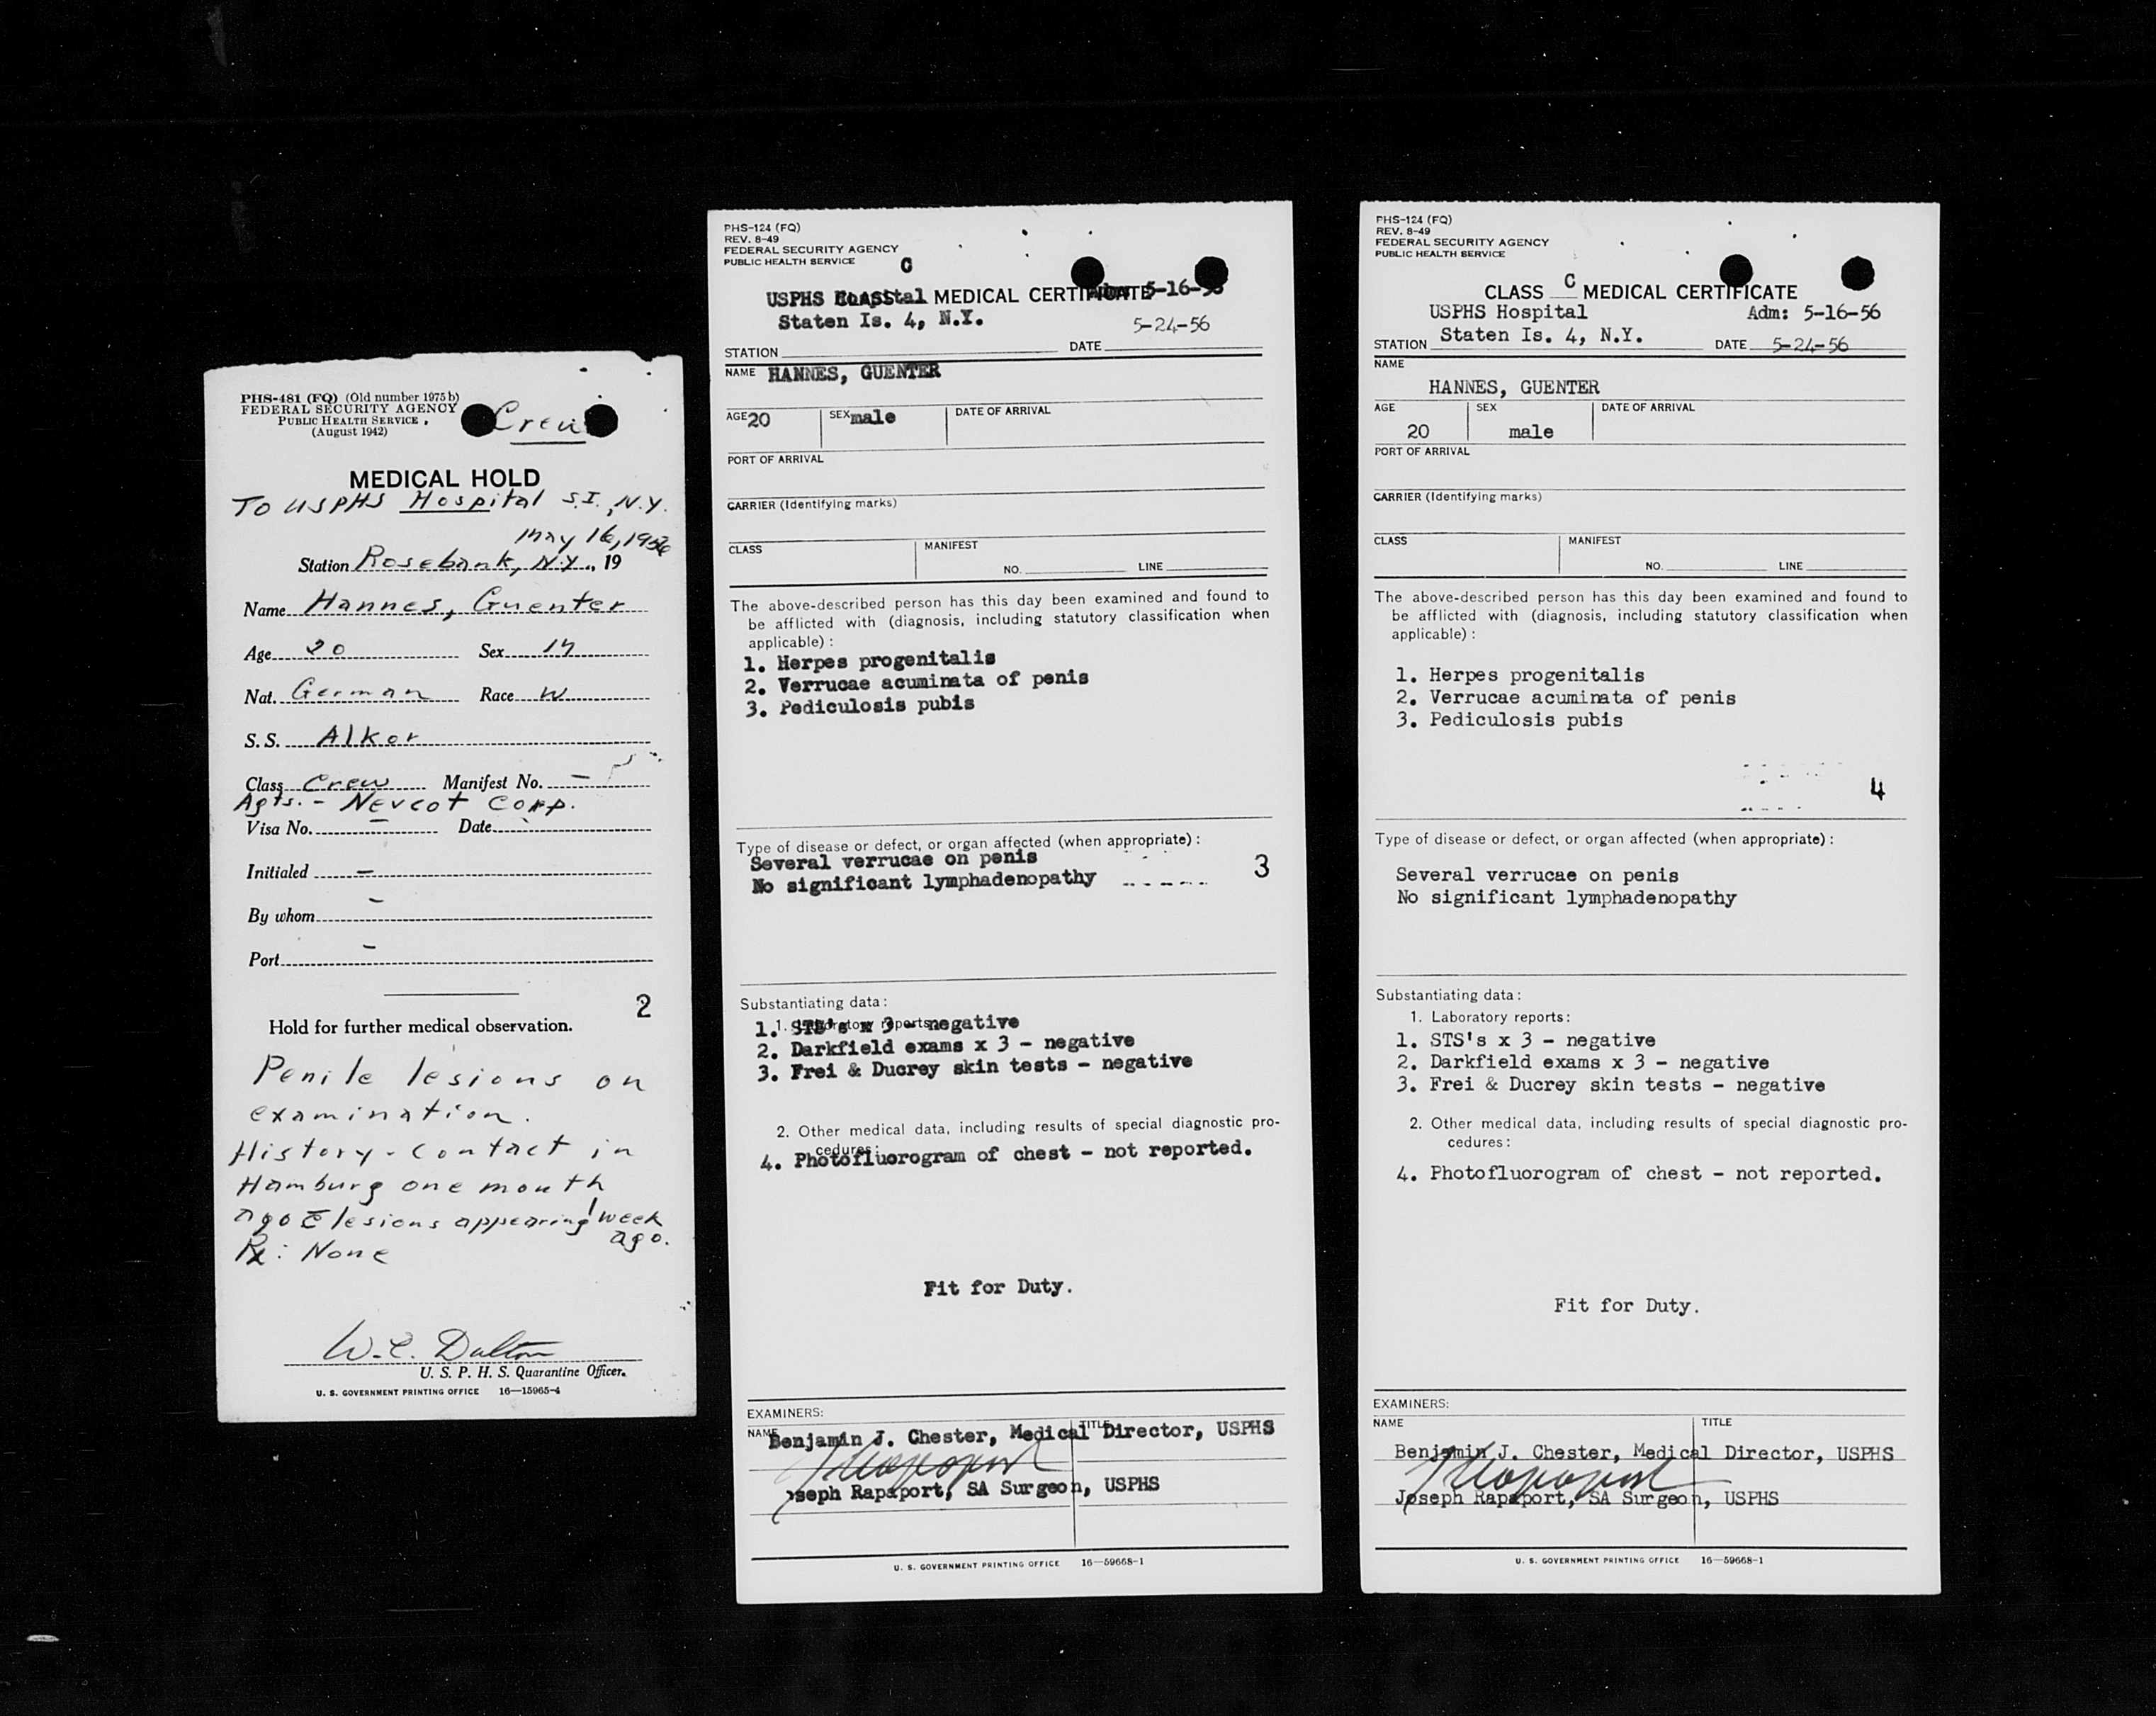 PHS-481 (FQ) (Old number 1975 b)
FEDERAL SECURITY AGENCY
PUBLIC HEALTH SERVICE
(August 1942)
Crew
MEDICAL HOLD
To USPHS Hospital S.I., N.Y.
May 16, 1956
Station Rosebank, N.Y., 19
Name Hannes, Guenter
Age 20 Sex M
Nat. German Race W
S. S. Alkor
Class Crew Manifest No. –
Agts. - Nevcot Corp.
Visa No. – Date
Initialed –
By whom –
Port –
2
Hold for further medical observation.
Penile lesions on
examination.
History - Contact in
Hamburg one month
ago c̄ lesions appearing 1 week
ago.
Rx: None
W. C. Dalton
U. S. P. H. S. Quarantine Officer.
U. S. GOVERNMENT PRINTING OFFICE 16—15965-4
PHS-124 (FQ)
REV. 8-49
FEDERAL SECURITY AGENCY
PUBLIC HEALTH SERVICE
C
USPHS Hospital MEDICAL CERTIFICATE 5-16-56
Staten Is. 4, N.Y. 5-24-56
STATION DATE
NAME HANNES, GUENTER
AGE 20 SEX male DATE OF ARRIVAL
PORT OF ARRIVAL
CARRIER (Identifying marks)
CLASS MANIFEST
NO. LINE
The above-described person has this day been examined and found to
be afflicted with (diagnosis, including statutory classification when
applicable) :
1. Herpes progenitalis
2. Verrucae acuminata of penis
3. Pediculosis pubis
Type of disease or defect, or organ affected (when appropriate) :
Several verrucae on penis
No significant lymphadenopathy
3
Substantiating data :
1. Laboratory reports:
1. STS's x 3 - negative
2. Darkfield exams x 3 - negative
3. Frei & Ducrey skin tests - negative
2. Other medical data, including results of special diagnostic pro-
cedures :
4. Photofluorogram of chest - not reported.
Fit for Duty.
EXAMINERS:
NAME TITLE
Benjamin J. Chester, Medical Director, USPHS
Joseph Rapaport, SA Surgeon, USPHS
U. S. GOVERNMENT PRINTING OFFICE 16—59668-1
PHS-124 (FQ)
REV. 8-49
FEDERAL SECURITY AGENCY
PUBLIC HEALTH SERVICE
CLASS C MEDICAL CERTIFICATE
USPHS Hospital Adm: 5-16-56
STATION Staten Is. 4, N.Y. DATE 5-24-56
NAME
HANNES, GUENTER
AGE SEX DATE OF ARRIVAL
20 male
PORT OF ARRIVAL
CARRIER (Identifying marks)
CLASS MANIFEST
NO. LINE
The above-described person has this day been examined and found to
be afflicted with (diagnosis, including statutory classification when
applicable) :
1. Herpes progenitalis
2. Verrucae acuminata of penis
3. Pediculosis pubis
4
Type of disease or defect, or organ affected (when appropriate) :
Several verrucae on penis
No significant lymphadenopathy
Substantiating data :
1. Laboratory reports:
1. STS's x 3 - negative
2. Darkfield exams x 3 - negative
3. Frei & Ducrey skin tests - negative
2. Other medical data, including results of special diagnostic pro-
cedures :
4. Photofluorogram of chest - not reported.
Fit for Duty.
EXAMINERS:
NAME TITLE
Benjamin J. Chester, Medical Director, USPHS
Joseph Rapaport, SA Surgeon, USPHS
U. S. GOVERNMENT PRINTING OFFICE 16—59668-1